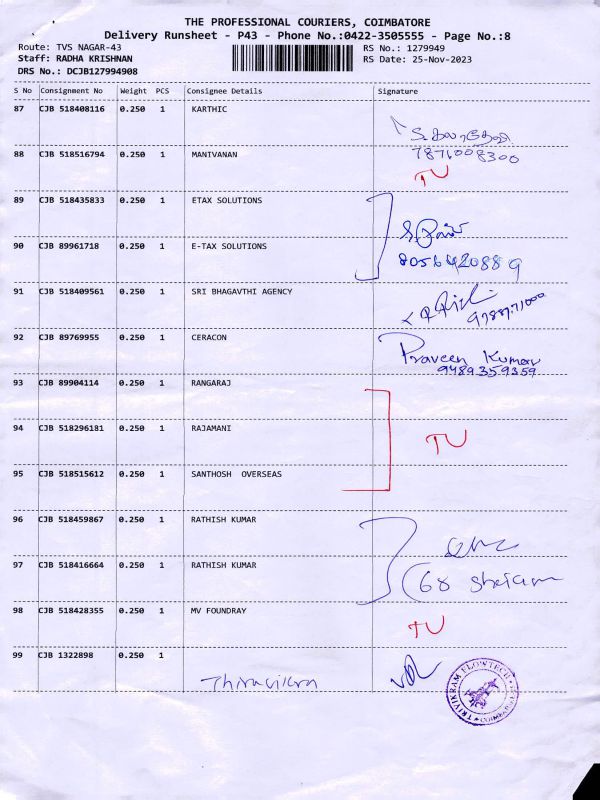 THE PROFESSIONAL COURIERS, COIMBATORE
Delivery Runsheet - P43 - Phone No.:0422-3505555 - Page No.:8
Route: TVS NAGAR-43
RS No.: 1279949
Staff: RADHA KRISHNAN
RS Date: 25-Nov-2023
DRS No.: DCJB127994908
S No Consignment No Weight PCS Consignee Details Signature
87 CJB 518408116 0.250 1 KARTHIC
88 CJB 518516794 0.250 1 MANIVANAN 7871008300
TU
89 CJB 518435833 0.250 1 ETAX SOLUTIONS
90 CJB 89961718 0.250 1 E-TAX SOLUTIONS
8056420889
91 CJB 518409561 0.250 1 SRI BHAGAVTHI AGENCY
92 CJB 89769955 0.250 1 CERACON
Praveen Kumar
9489359359
93 CJB 89904114 0.250 1 RANGARAJ
94 CJB 518296181 0.250 1 RAJAMANI TU
95 CJB 518515612 0.250 1 SANTHOSH OVERSEAS
96 CJB 518459867 0.250 1 RATHISH KUMAR
97 CJB 518416664 0.250 1 RATHISH KUMAR
98 CJB 518428355 0.250 1 MV FOUNDRAY TU
99 CJB 1322898 0.250 1
TRIVIKRAM FLOWTECH